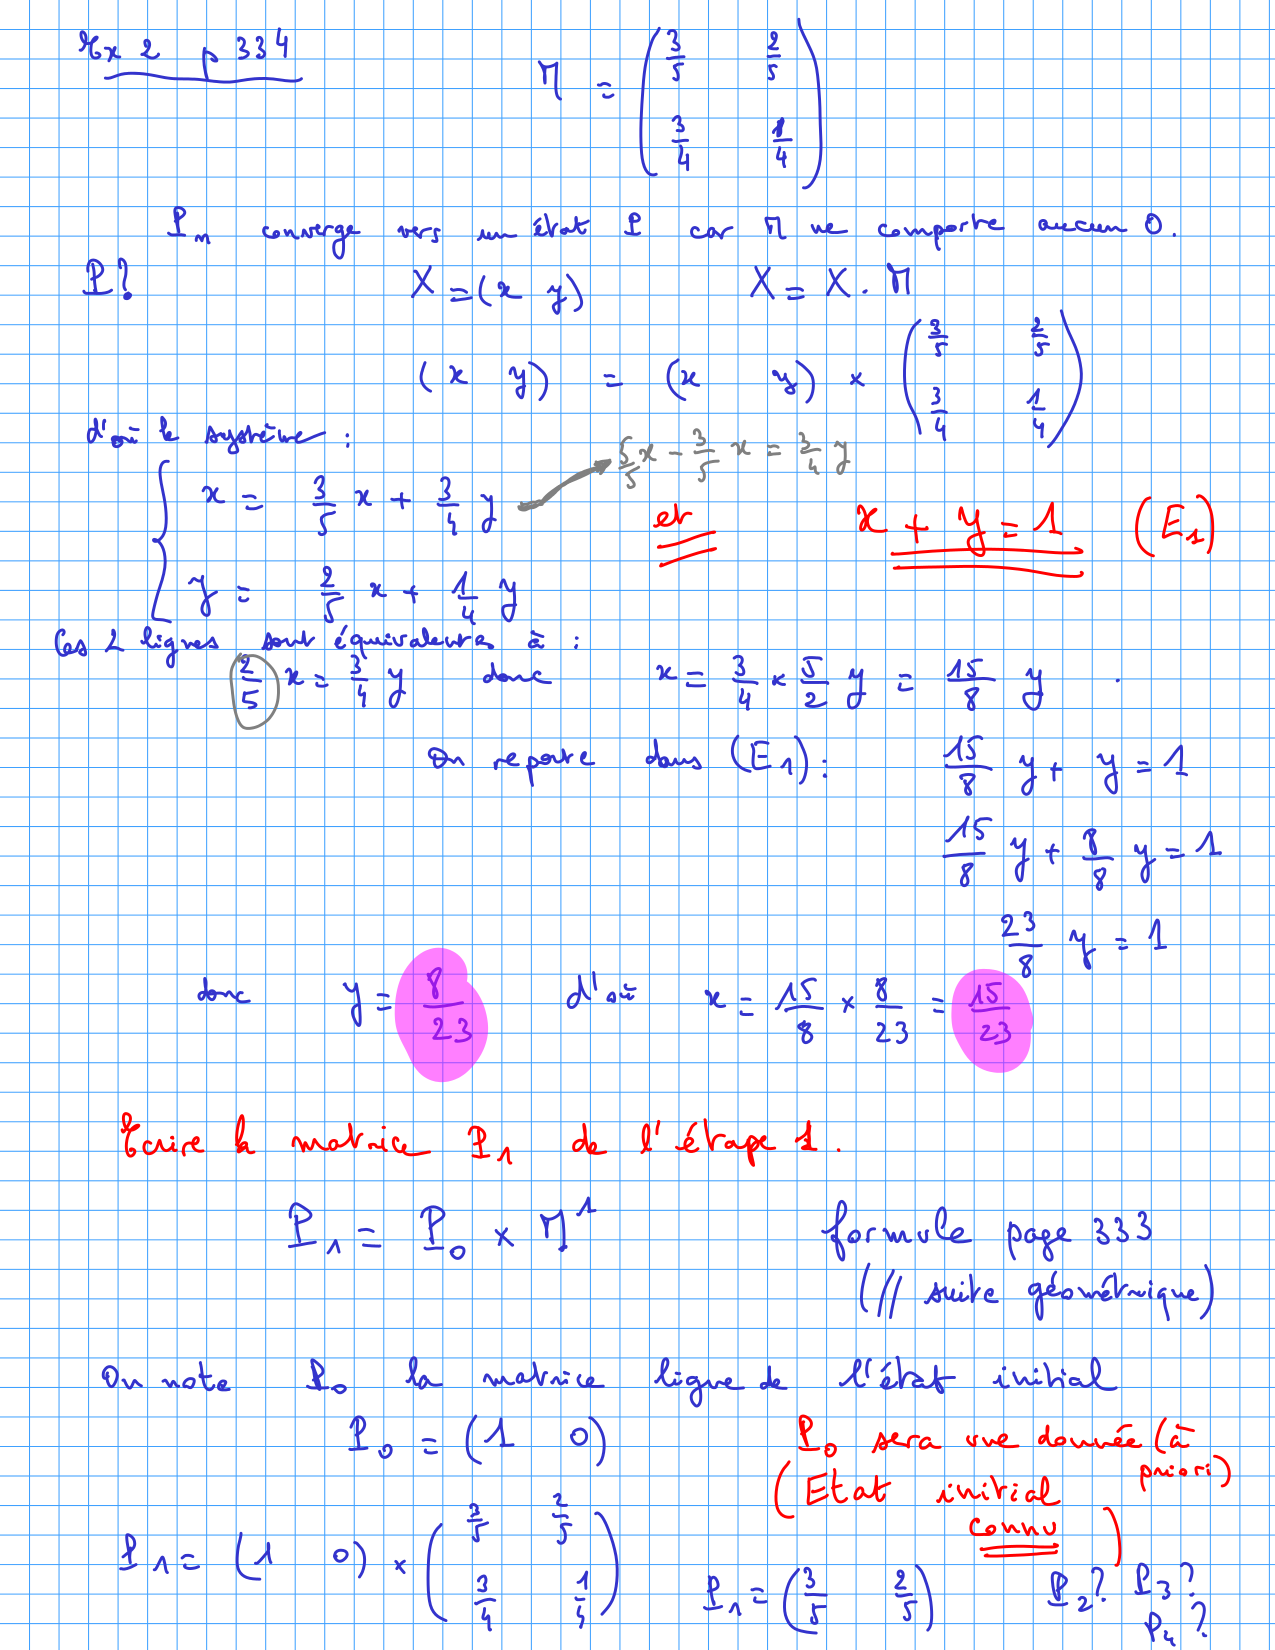 Ex 2 p 334
M = ( 3/5 2/5
3/4 1/4 )
Pn converge vers un état P car M ne comporte aucun 0.
P? X = (x y) X = X . M
(x y) = (x y) × ( 3/5 2/5
3/4 1/4 )
d'où le système :
5/5 x - 3/5 x = 3/4 y
x = 3/5 x + 3/4 y
et x + y = 1 (E1)
y = 2/5 x + 1/4 y
Ces 2 lignes sont équivalentes à :
2/5 x = 3/4 y donc x = 3/4 × 5/2 y = 15/8 y .
On reporte dans (E1) : 15/8 y + y = 1
15/8 y + 8/8 y = 1
23/8 y = 1
donc y = 8/23 d'où x = 15/8 × 8/23 = 15/23
Ecrire la matrice P1 de l'étape 1.
P1 = P0 × M^1 formule page 333
(// suite géométrique)
On note P0 la matrice ligne de l'état initial
P0 = (1 0) P0 sera une donnée (à priori)
(Etat initial connu)
P1 = (1 0) × ( 3/5 2/5
3/4 1/4 )
P1 = (3/5 2/5) P2? P3?
P4?